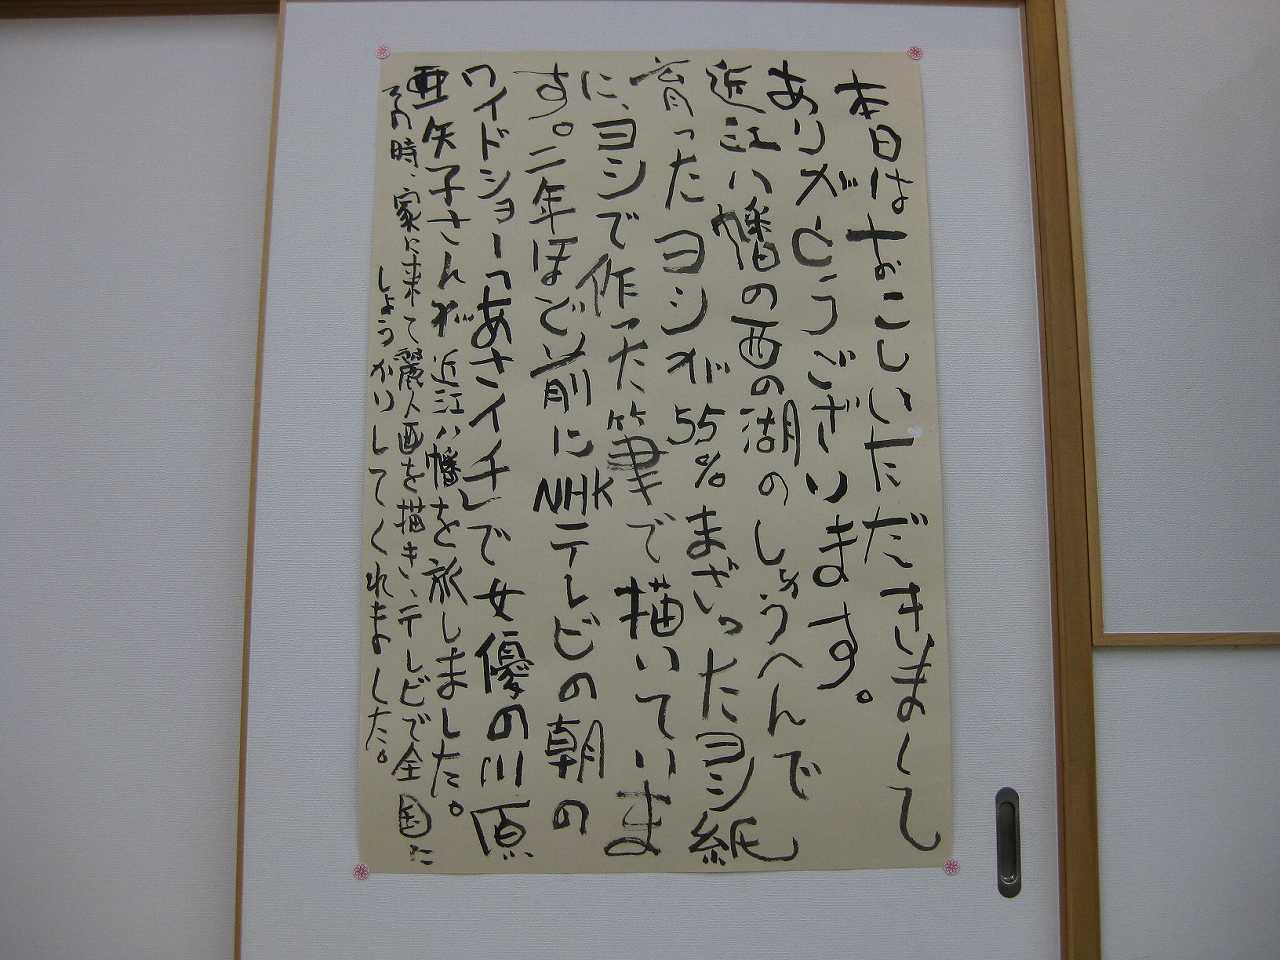 本日はおこしいただきまして
ありがとうございます。
近江八幡の西の湖のしゅうへんで
育ったヨシが55%まざったヨシ紙
に、ヨシで作った筆で描いていま
す。二年ほど前にNHKテレビの朝の
ワイドショー「あさイチ」で女優の川原
亜矢子さんが近江八幡を旅しました。
その時、家に来て麗人画を描き、テレビで全国に
しょうかいしてくれました。